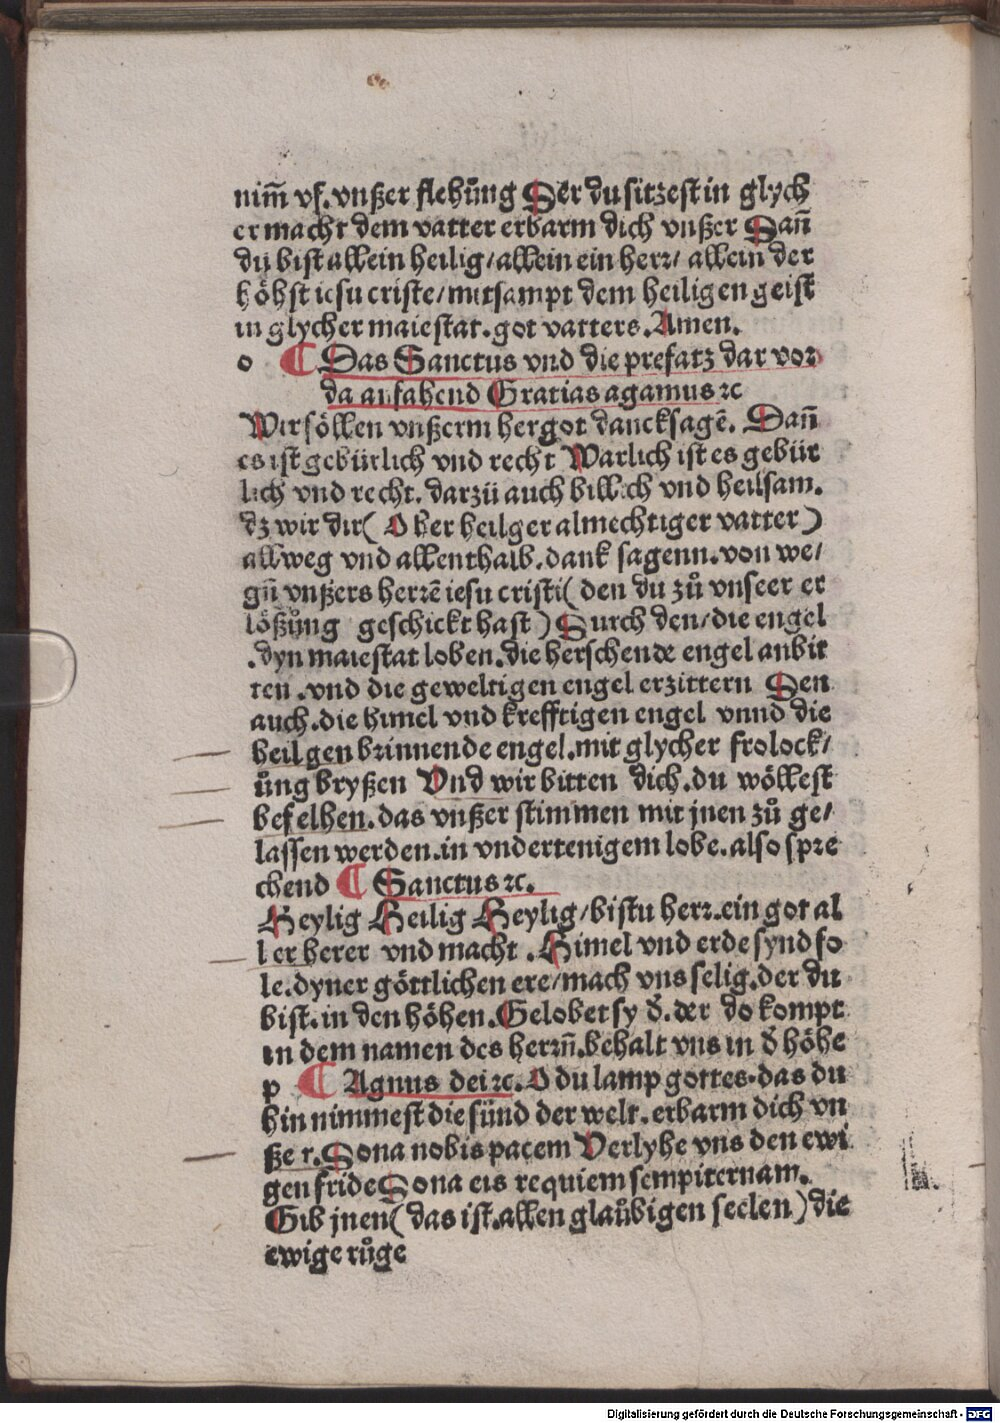 nim̄ vf. vnßer flehu̇ng Der du sitzest in glych
er macht dem vatter erbarm dich vnßer Dañ
dü bist allein heilig/ allein ein herr/ allein der
höhst iesu criste/ mitsampt dem heiligen geist
in glycher maiestat. got vatters. Amen.
o ¶ Das Sanctus vnd die prefatz dar vor
da anfahend Gratias agamus ⁊c
Wir söllen vnßerm hergot dancksagē. Dañ
es ist gebürlich vnd recht Warlich ist es gebür
lich vnd recht. darzü auch billich vnd heilsam.
dz wir dir ( O her heilger almechtiger vatter )
allweg vnd allenthalb. dank sagenn. von we/
gñ vnßers herrē iesu cristi ( den du zů vnseer er
lößůng geschickt hast ) Durch den/ die engel
. dyn maiestat loben. die herschende engel anbit
ten . vnd die geweltigen engel erzittern Den
auch. die himel vnd krefftigen engel vnnd die
heilgen brinnende engel. mit glycher frolock/
ůng bryßen Vnd wir bitten dich. du wöllest
befelhen. das vnßer stimmen mit jnen zů ge/
lassen werden. in vndertenigem lobe. also spre
chend ¶ Sanctus ⁊c.
Heylig Heilig Heylig/ bistu herr. ein got al
ler herer vnd macht . Himel vnd erde synd fo
le. dyner göttlichen ere/ mach vns selig. der du
bist. in den höhen. Gelobet sy d̄. der do kompt
in dem namen des herrñ. behalt vns in d̄ höhe
p ¶ Agnus dei ⁊c. O du lamp gottes. das du
hin nimmest die sünd der welt. erbarm dich vn
ßer. Dona nobis pacem Verlyhe vns den ewi
gen fride Dona eis requiem sempiternam.
Gib jnen ( das ist. allen glaůbigen seelen ) die
ewige růge
Digitalisierung gefördert durch die Deutsche Forschungsgemeinschaft - DFG